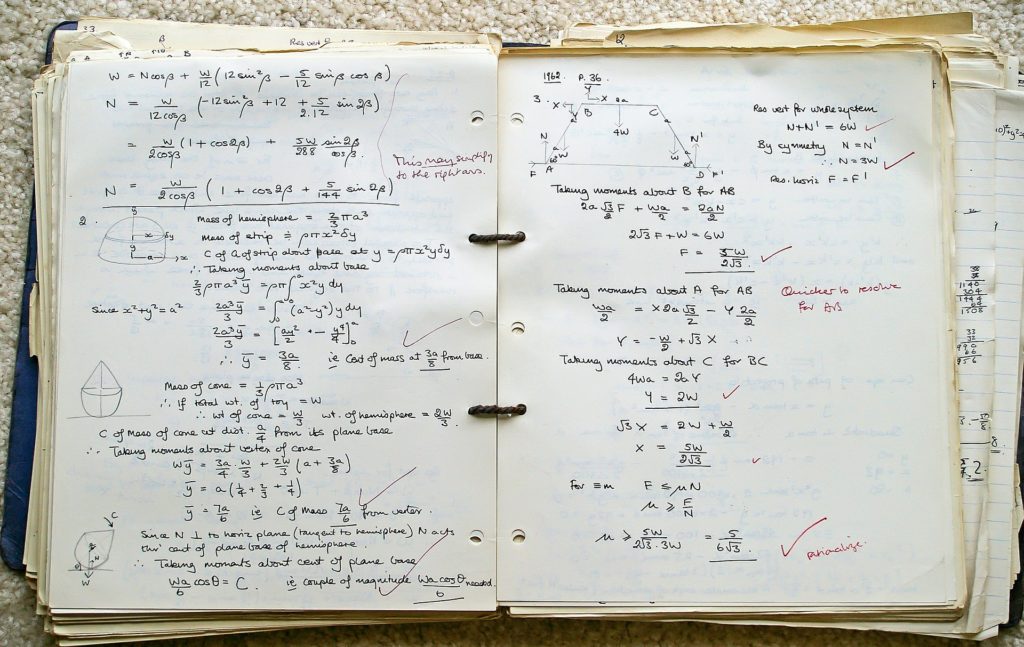 33
W = N cosβ + W/12 (12 sin²β − 5/12 sinβ cosβ)
N = W/12cosβ (−12 sin²β + 12 + 5/2.12 sin 2β)
= W/2cosβ (1 + cos2β) + 5W/288 sin2β/cosβ.
This may simplify
to the right ans.
N = W/2cosβ (1 + cos2β + 5/144 sin2β)
2.
y
x
δy
y
a
x
Mass of hemisphere = 2/3 πa³
Mass of strip ≑ ρπx²δy
C of G of strip about base at y = ρπx²yδy
∴ Taking moments about base
2/3 ρπa³ȳ = ρπ∫₀ᵃ x²y dy
Since x²+y² = a² 2a³ȳ/3 = ∫₀ᵃ (a²−y²) y dy
2a³ȳ/3 = [ay²/2 + − y⁴/4]₀ᵃ
∴ ȳ = 3a/8 ie Cent of mass at 3a/8 from base.
Mass of cone = 1/3 ρπa³
∴ If total wt. of toy = W
∴ wt of cone = W/3 wt. of hemisphere = 2W/3.
C of Mass of cone at dist. a/4 from its plane base
∴ Taking moments about vertex of cone
Wȳ = 3a/4 . W/3 + 2W/3 (a + 3a/8)
ȳ = a(1/4 + 2/3 + 1/4)
ȳ = 7a/6 ie C of Mass 7a/6 from vertex.
C
N
W
θ
Since N ⊥ to horiz plane (tangent to hemisphere) N acts
thro' cent of plane base of hemisphere.
∴ Taking moments about cent of plane base
Wa/6 cosθ = C. ie couple of magnitude Wa cosθ/6 needed.
12.
1962 P.36.
3.
Y
X
X
2a
B
C
4W
N
N'
W
W
F
A
60°
60°
D
F'
Res vert for whole system
N+N' = 6W
By symmetry N = N'
∴ N = 3W
Res. horiz F = F'
Taking moments about B for AB
2a√3/2 F + Wa/2 = 2aN/2
2√3 F + W = 6W
F = 5W/2√3.
Taking moments about A for AB
Quicker to resolve
for AB
Wa/2 = X 2a√3/2 − Y 2a/2
Y = −W/2 + √3 X
Taking moments about C for BC
4Wa = 2a Y
Y = 2W
√3 X = 2W + W/2
X = 5W/2√3
For ≡m F ≤ μN
μ ≥ F/N
μ ≥ 5W/2√3.3W = 5/6√3.
rationalize.
38
38
1140
304
1444
64
1508
33
33
990
66
956